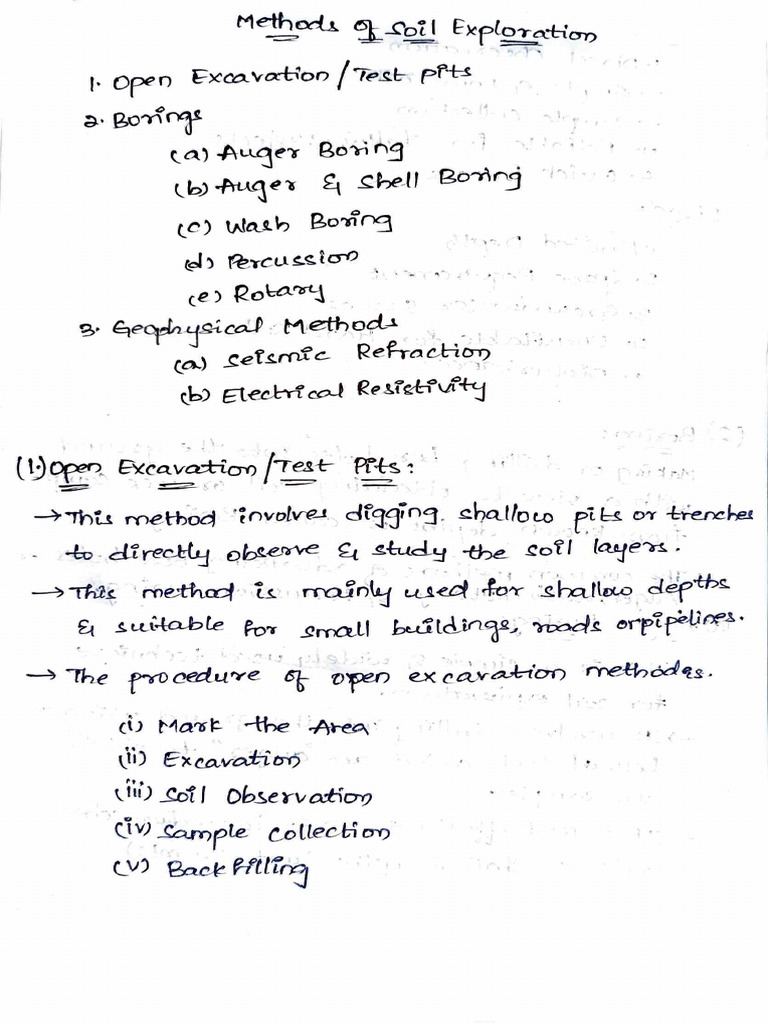 Methods of Soil Exploration
1. Open Excavation/Test Pits
2. Borings
(a) Auger Boring
(b) Auger & Shell Boring
(c) Wash Boring
(d) Percussion
(e) Rotary
3. Geophysical Methods
(a) Seismic Refraction
(b) Electrical Resistivity
(1.) Open Excavation/Test Pits:
→ This method involves digging shallow pits or trenches
to directly observe & study the soil layers.
→ This method is mainly used for shallow depths
& suitable for small buildings, roads or pipelines.
→ The procedure of open excavation methodes.
(i) Mark the Area
(ii) Excavation
(iii) Soil Observation
(iv) Sample Collection
(v) Back filling